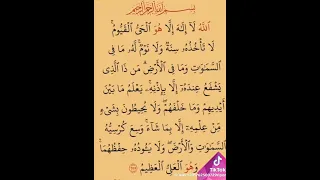 بِسْمِ اللَّهِ الرَّحْمَٰنِ الرَّحِيمِ
اللَّهُ لَا إِلَٰهَ إِلَّا هُوَ الْحَيُّ الْقَيُّومُ ۚ
لَا تَأْخُذُهُ سِنَةٌ وَلَا نَوْمٌ ۚ لَهُ مَا فِي
السَّمَاوَاتِ وَمَا فِي الْأَرْضِ ۗ مَنْ ذَا الَّذِي
يَشْفَعُ عِنْدَهُ إِلَّا بِإِذْنِهِ ۚ يَعْلَمُ مَا بَيْنَ
أَيْدِيهِمْ وَمَا خَلْفَهُمْ ۖ وَلَا يُحِيطُونَ بِشَيْءٍ
مِنْ عِلْمِهِ إِلَّا بِمَا شَاءَ ۚ وَسِعَ كُرْسِيُّهُ
السَّمَاوَاتِ وَالْأَرْضَ ۖ وَلَا يَئُودُهُ حِفْظُهُمَا ۚ
وَهُوَ الْعَلِيُّ الْعَظِيمُ
TikTok